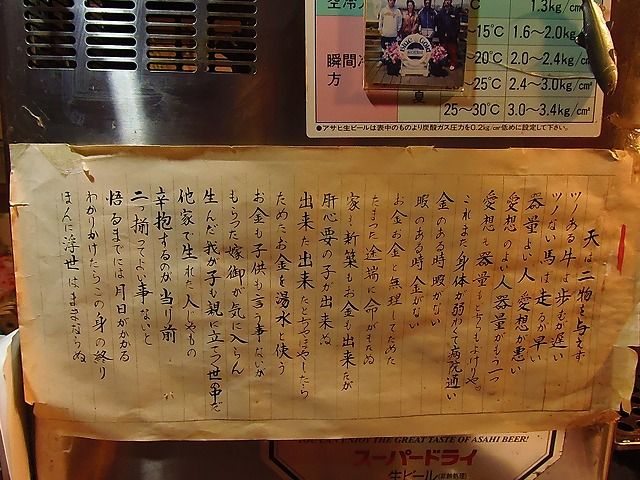 空冷
瞬間冷
方
1.3kg/c
℃
~15℃
1.6~2.0kg/
~20℃
2.0~2.4kg/c
~25℃
2.4~3.0kg/c㎡
夏
25~30℃
3.0~3.4kg/c㎡
●アサヒ生ビールは表中のものより炭酸ガス圧力を0.2kg/c㎡低めに設定して下さい。
天は二物を与えず
ツノある牛は歩むが遅い
ツノない馬は走るが早い
器量よい人愛想が悪い
愛想のよい人器量がもう一つ
愛想も器量もどちらもよけりゃ
これまた身体が弱わくて病院通い
金のある時暇がない
暇のある時金がない
お金お金と無理してためた
たまった途端に命がもたぬ
家も新築もお金も出来たが
肝心要の子が出来ぬ
出来た出来たとよろこぼやしたら
ためたお金を湯水と使う
お金も子供も言う事ないが
もらった嫁御が気に入らん
生んだ我が子も親に立てつく世の中だ
他家で生れた人じゃもの
辛抱するのが当り前
二つ揃ってよい事ないと
悟るまでには月日がかかる
わかりかけたらこの身の終り
ほんに浮世はままならぬ
ENJOY THE GREAT TASTE OF ASAHI BEER!
スーパードライ
生ビール(非熱処理)